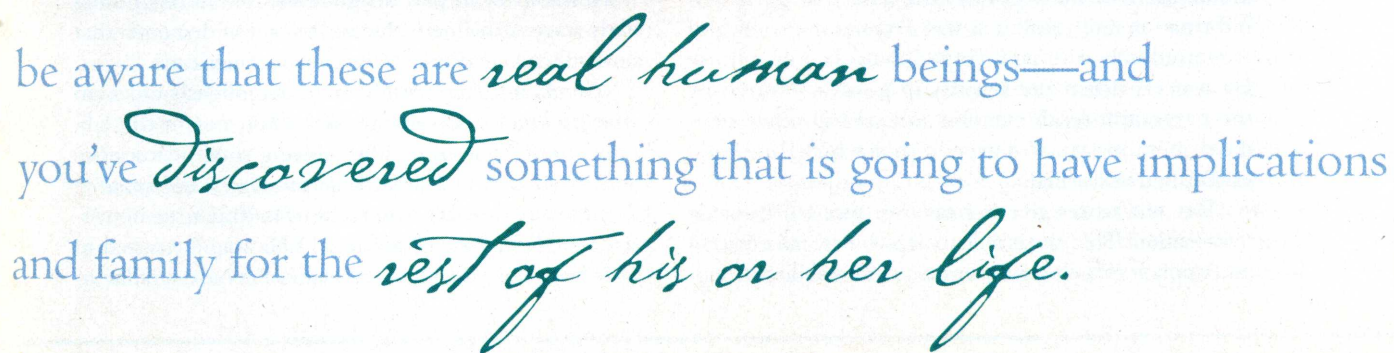 be aware that these are real human beings—and
you've discovered something that is going to have implications
and family for the rest of his or her life.